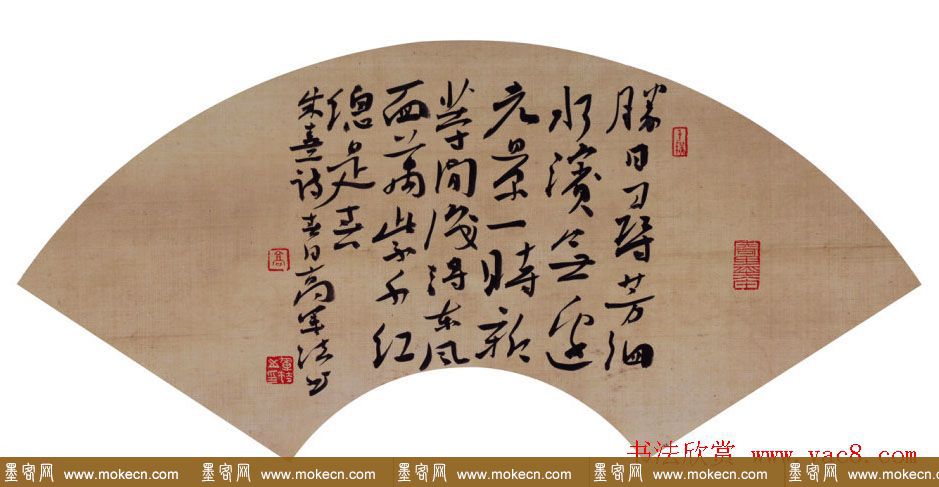 勝日尋芳泗
水濱無邊
光景一時新
等閒識得東風
面萬紫千紅
總是春
朱熹詩春日高軍法书
书法欣赏 www.yac8.com
墨客网 www.mokecn.com 墨客网 www.mokecn.com 墨客网 www.mokecn.com 墨客网 www.mokecn.com 墨客网